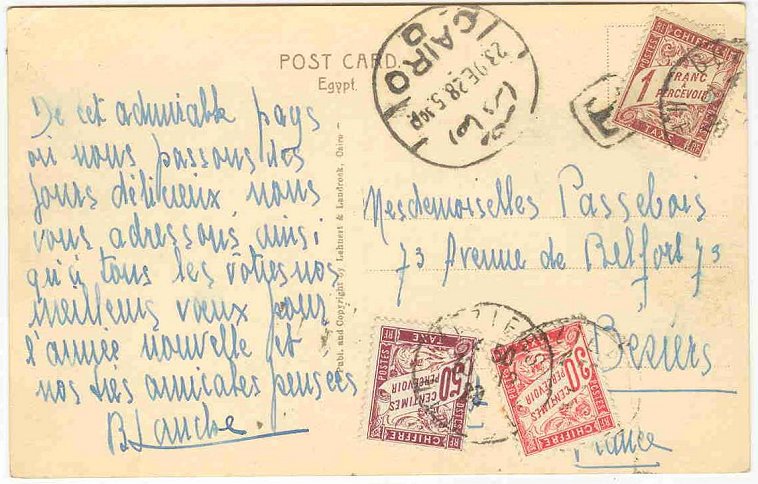 POST CARD.
Egypt.
CAIRO
23.DE.28.5
T
POSTES
CHIFFRE
RF
1
FRANC
À
PERCEVOIR
TAXE
RF
De cet admirable pays
où nous passons des
jours délicieux nous
vous adressons ainsi
qu'à tous les vôtres nos
meilleurs vœux pour
l'année nouvelle et
nos très amicales pensées
Blanche
Publ. and Copyright by Lehnert & Landrock, Cairo
Mesdemoiselles Passebois
73 Avenue de Belfort 73
Beziers
France
POSTES
CHIFFRE
RF
50
CENTIMES
À
PERCEVOIR
TAXE
RF
POSTES
CHIFFRE
RF
30
CENTIMES
À
PERCEVOIR
TAXE
RF